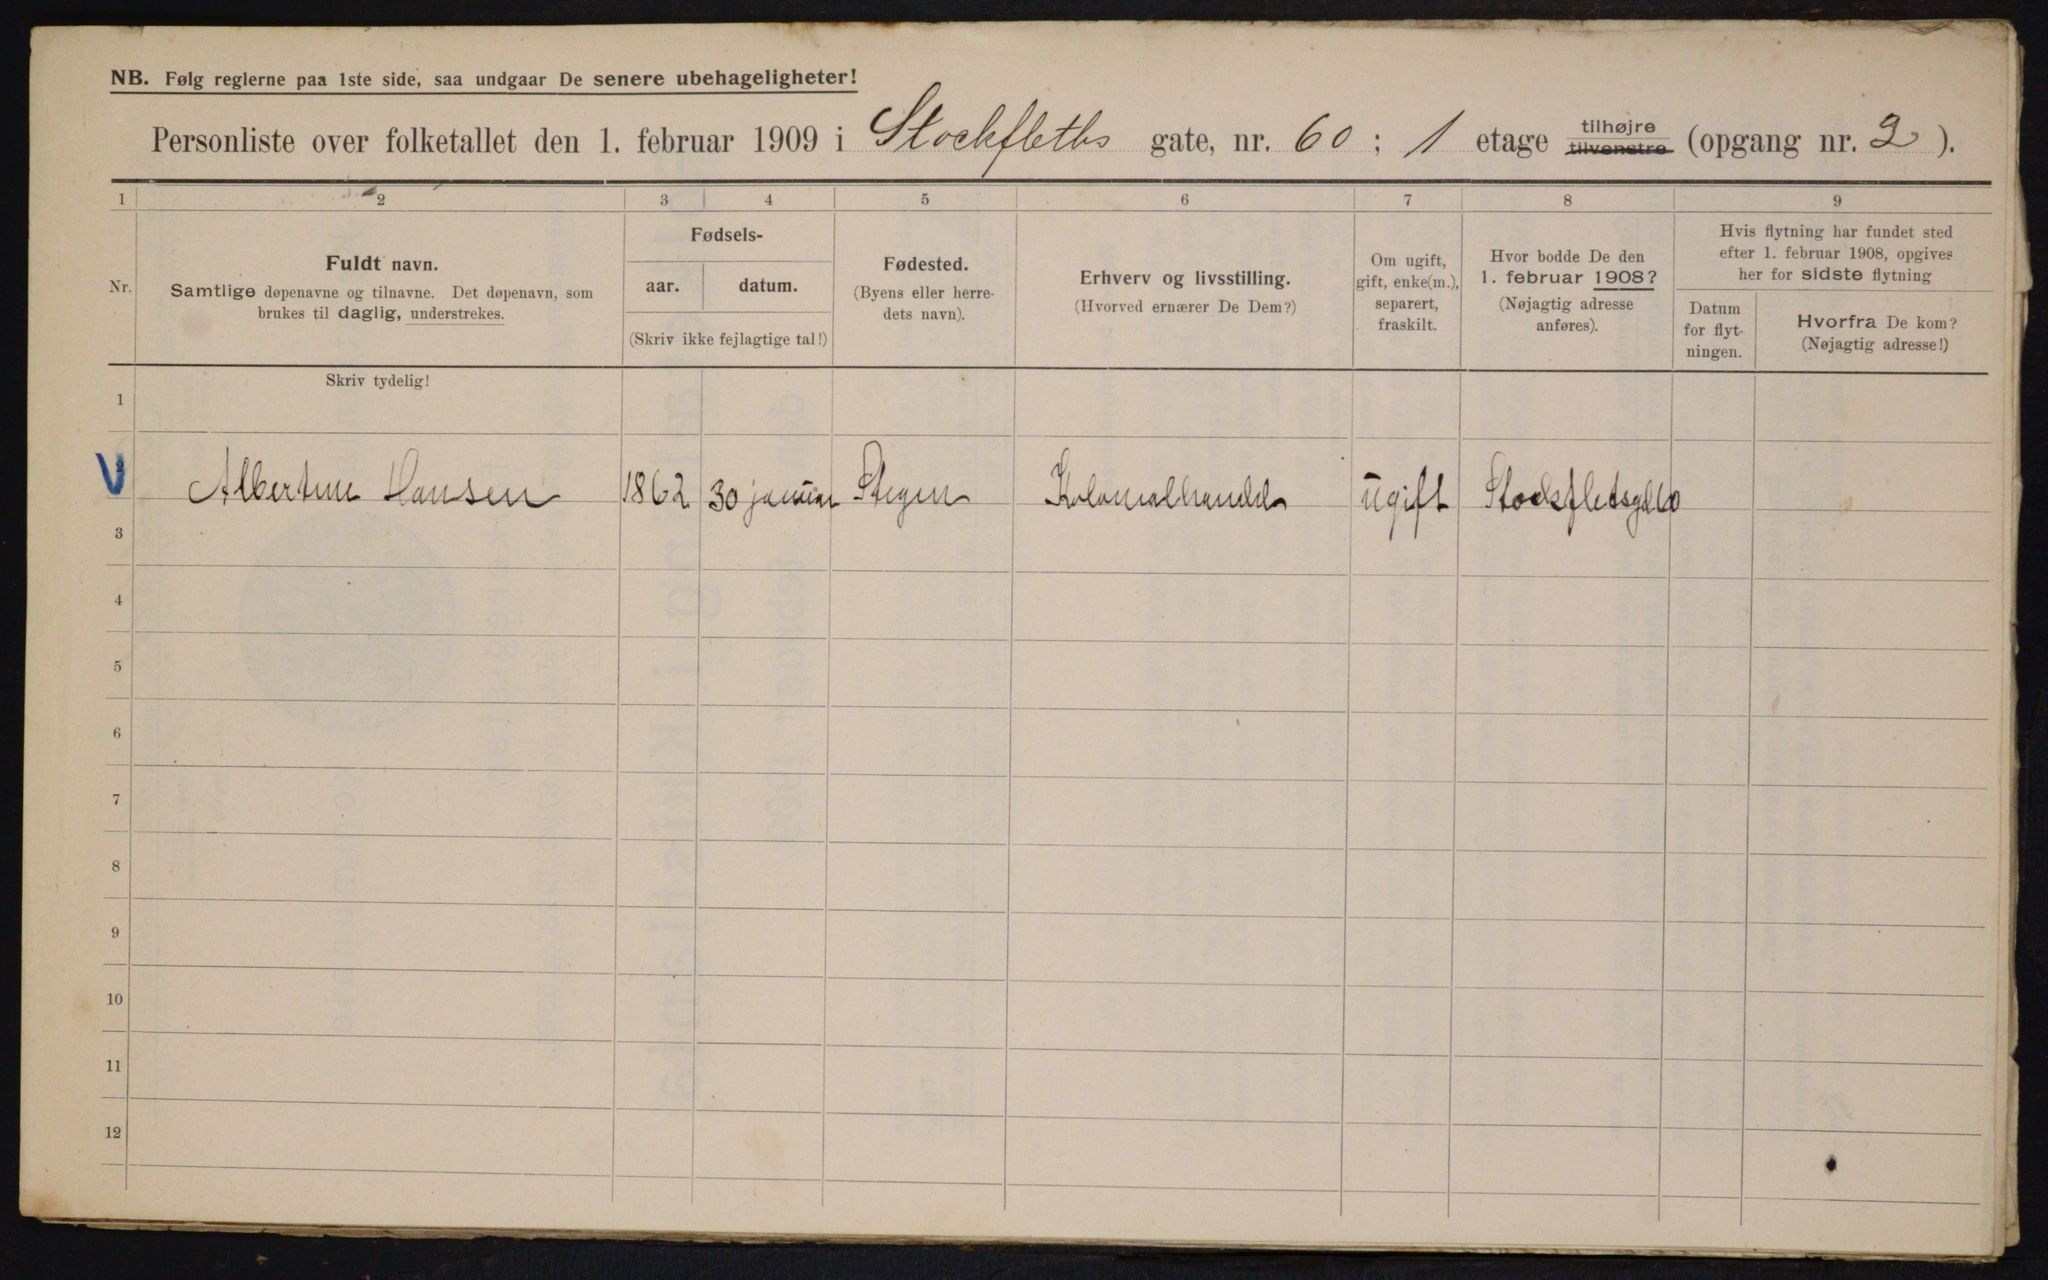 NB. Følg reglerne paa 1ste side, saa undgaar De senere ubehageligheter!
Personliste over folketallet den 1. februar 1909 i Stockfleths gate, nr. 60; 1 etage tilhøjre tilvenstre (opgang nr. 2).
1 2 3 4 5 6 7 8 9
Nr.
Fuldt navn.
Samtlige døpenavne og tilnavne. Det døpenavn, som
brukes til daglig, understrekes.
Fødsels-
aar. datum.
(Skriv ikke fejlagtige tal!)
Fødested.
(Byens eller herre-
dets navn).
Erhverv og livsstilling.
(Hvorved ernærer De Dem?)
Om ugift,
gift, enke(m.),
separert,
fraskilt.
Hvor bodde De den
1. februar 1908?
(Nøjagtig adresse
anføres).
Hvis flytning har fundet sted
efter 1. februar 1908, opgives
her for sidste flytning
Datum
for flyt-
ningen.
Hvorfra De kom?
(Nøjagtig adresse!)
Skriv tydelig!
1
2 Albertine Hansen 1862 30 januar Stegen Kolonialhandel ugift Stockfletsgd60
3
4
5
6
7
8
9
10
11
12